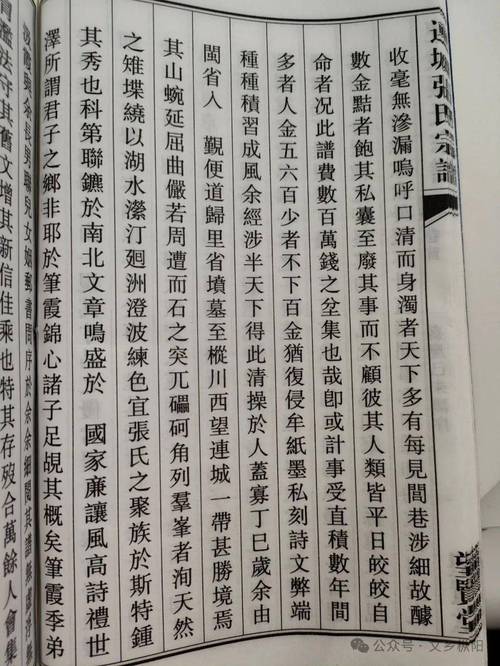 連城張氏宗譜
望賢堂
收毫無滲漏嗚呼口清而身濁者天下多有每見閭巷涉細故醵
數金黠者飽其私囊至廢其事而不顧彼其人類皆平日皎皎自
命者况此譜費數百萬錢之坌集也哉卽或計事受直積數年間
多者人金五六百少者不下百金猶復侵牟紙墨私刻詩文弊端
種種積習成風余經涉半天下得此清操於人蓋寡丁巳歲余由
閩省人　覲便道歸里省墳墓至樅川西望連城一帶甚勝境焉
其山蜿延屈曲儼若周遭而石之突兀礧砢角列羣峯者洵天然
之雉堞繞以湖水瀠汀廻洲澄波練色宜張氏之聚族於斯特鍾
其秀也科第聯鑣於南北文章鳴盛於　國家廉讓風高詩禮世
澤所謂君子之鄉非耶於筆霞錦心諸子足覘其概矣筆霞季弟
余長男聯兒女姻郵書問序於余余細閱其譜
胃濫法守其舊文增其新信佳乘也特其存歿合萬餘人會集
公众号·文乡枞阳